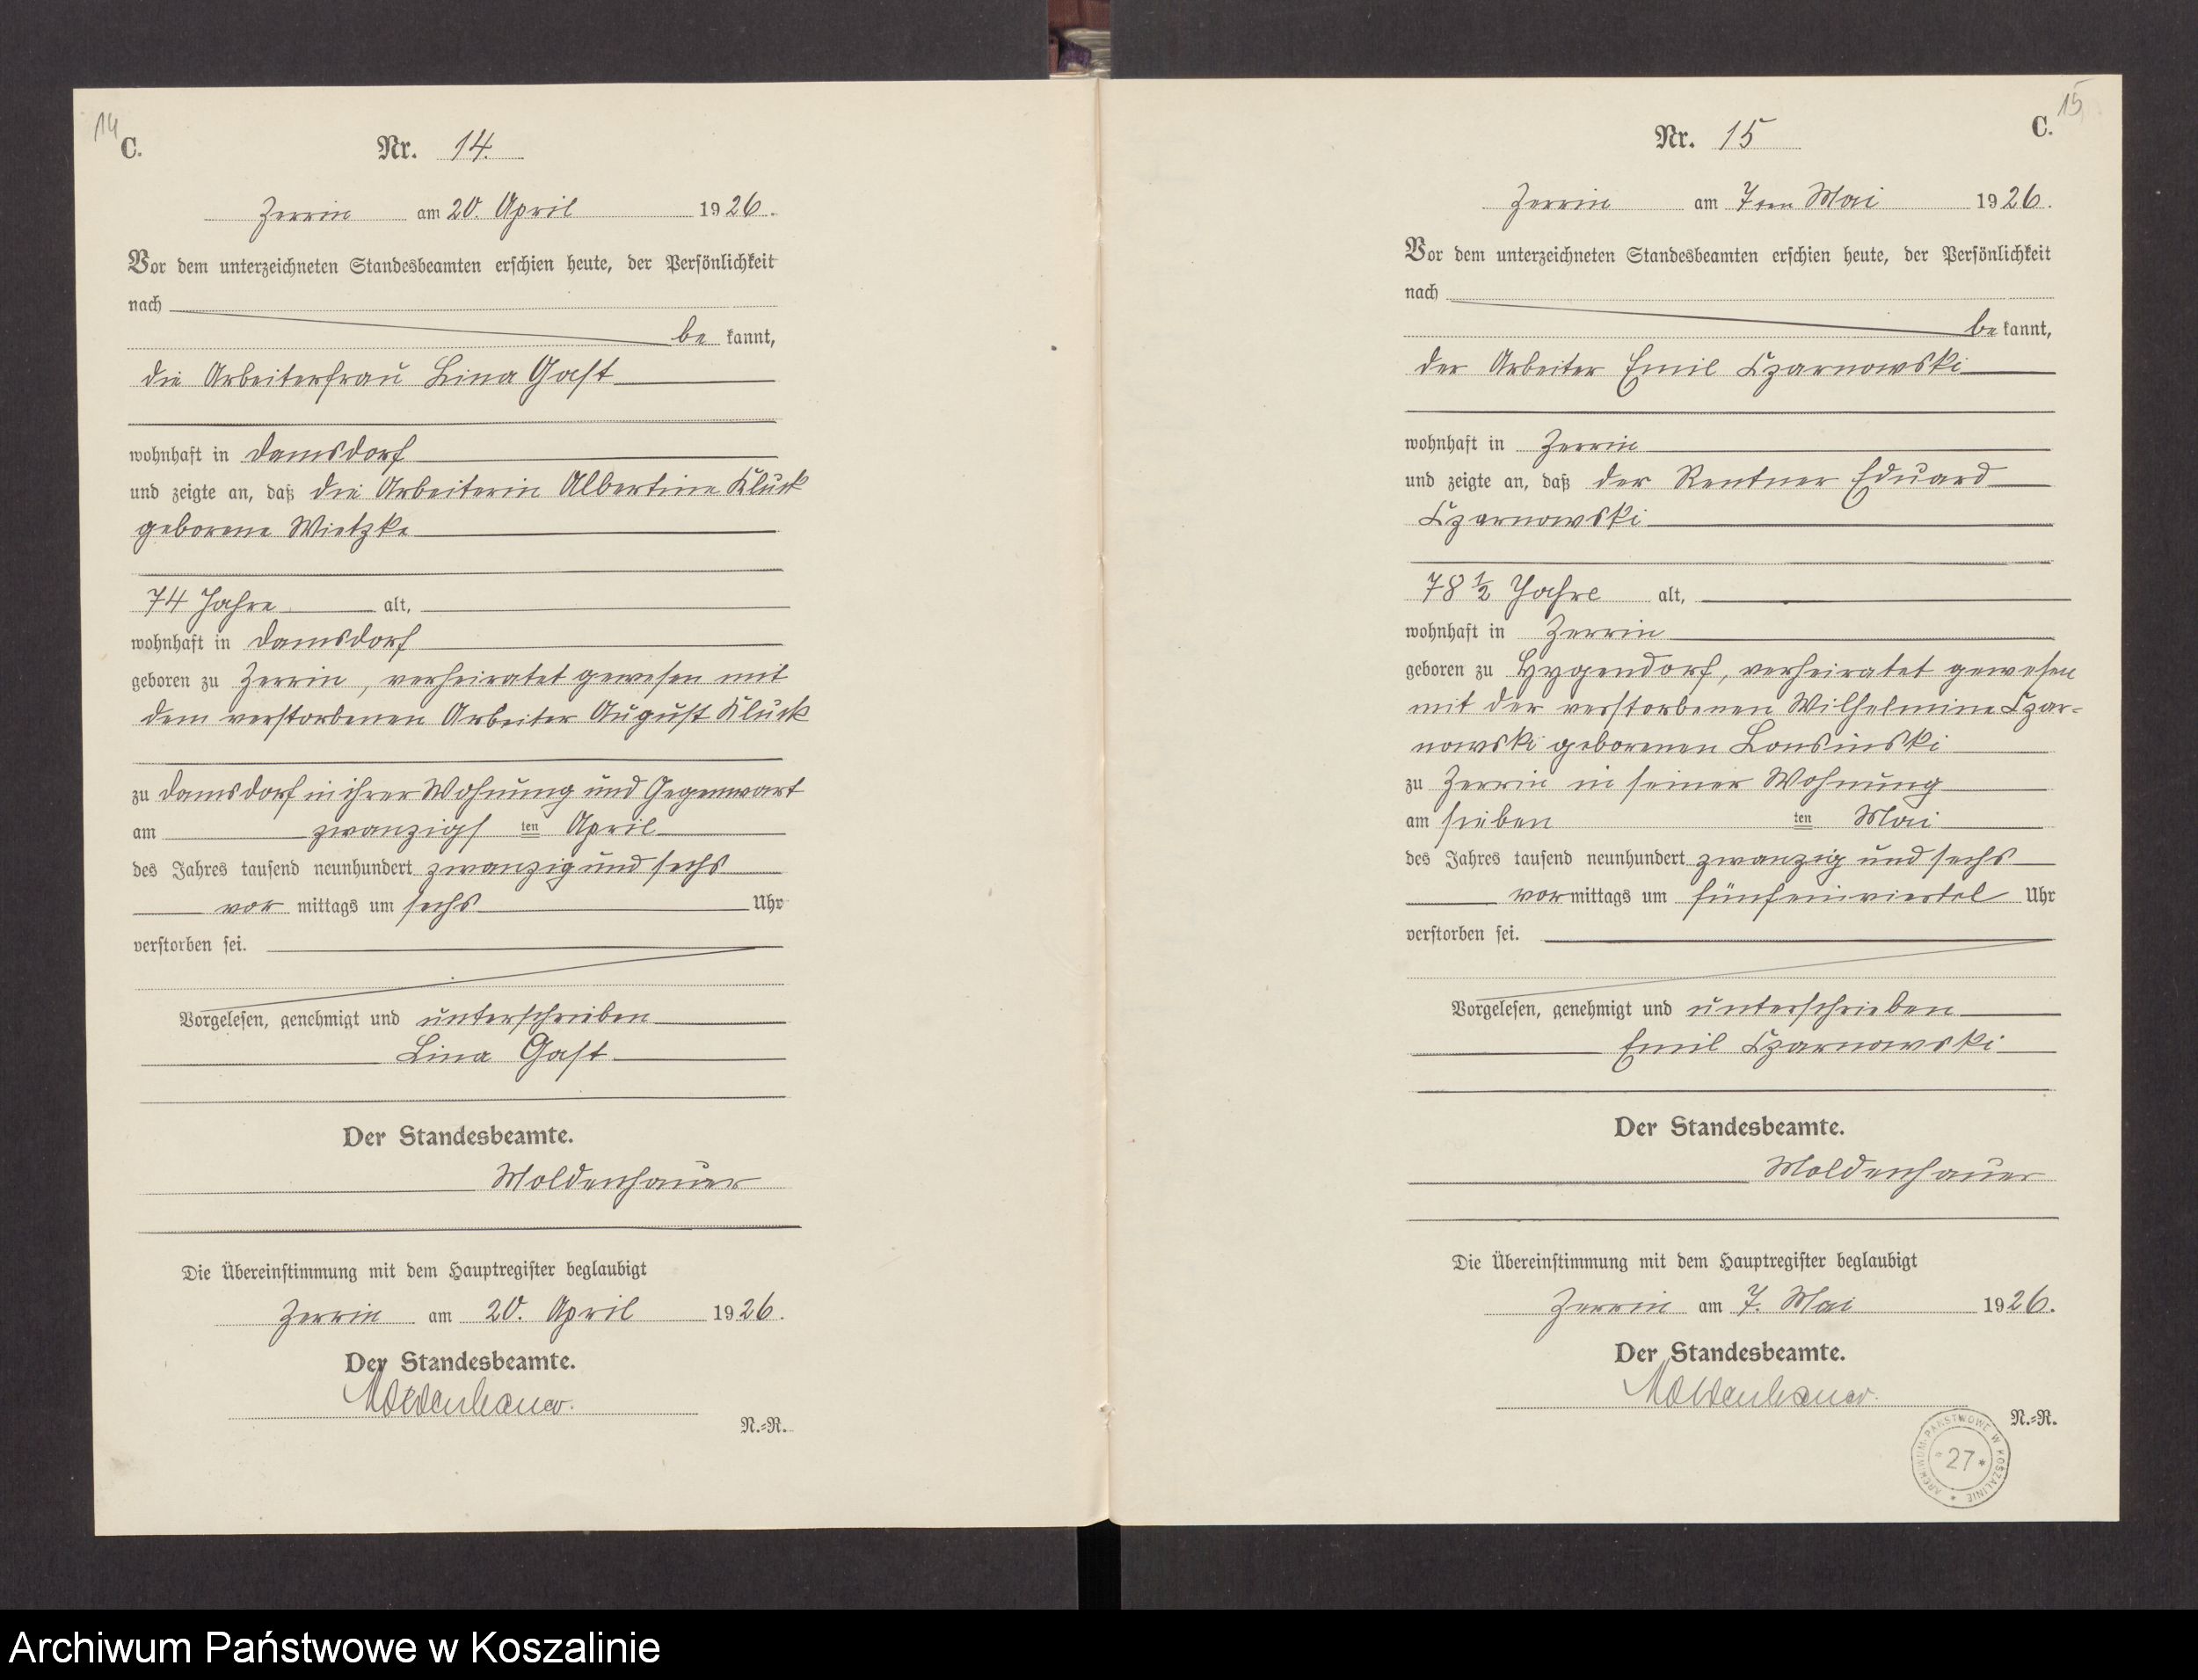 14
C.
Nr. 14.
Zerrin am 20. April 1926.
Vor dem unterzeichneten Standesbeamten erschien heute, der Persönlichkeit
nach
be kannt,
die Arbeiterfrau Lina Gast
wohnhaft in Damsdorf
und zeigte an, daß die Arbeiterin Albertine Kluck
geborene Wietzke
74 Jahre alt,
wohnhaft in Damsdorf
geboren zu Zerrin, verheiratet gewesen mit
dem verstorbenen Arbeiter August Kluck
zu Damsdorf in ihrer Wohnung und Gegenwart
am zwanzigs ten April
des Jahres tausend neunhundert zwanzig und sechs
vor mittags um sechs Uhr
verstorben sei.
Vorgelesen, genehmigt und unterschrieben
Lina Gast
Der Standesbeamte.
Moldenhauer
Die Übereinstimmung mit dem Hauptregister beglaubigt
Zerrin am 20. April 1926.
Der Standesbeamte.
Moldenhauer.
N.=R.
15
C.
Nr. 15
Zerrin am 7ten Mai 1926.
Vor dem unterzeichneten Standesbeamten erschien heute, der Persönlichkeit
nach
be kannt,
der Arbeiter Emil Czarnowski
wohnhaft in Zerrin
und zeigte an, daß der Rentner Eduard
Czarnowski
78 1/2 Jahre alt,
wohnhaft in Zerrin
geboren zu Hygendorf, verheiratet gewesen
mit der verstorbenen Wilhelmine Czar=
nowski geborenen Lonsinski
zu Zerrin in seiner Wohnung
am sieben ten Mai
des Jahres tausend neunhundert zwanzig und sechs
vor mittags um fünfeinviertel Uhr
verstorben sei.
Vorgelesen, genehmigt und unterschrieben
Emil Czarnowski
Der Standesbeamte.
Moldenhauer
Die Übereinstimmung mit dem Hauptregister beglaubigt
Zerrin am 7. Mai 1926.
Der Standesbeamte.
Moldenhauer.
N.=R.
ARCHIWUM PAŃSTWOWE W KOSZALINIE
* 27 *
Archiwum Państwowe w Koszalinie